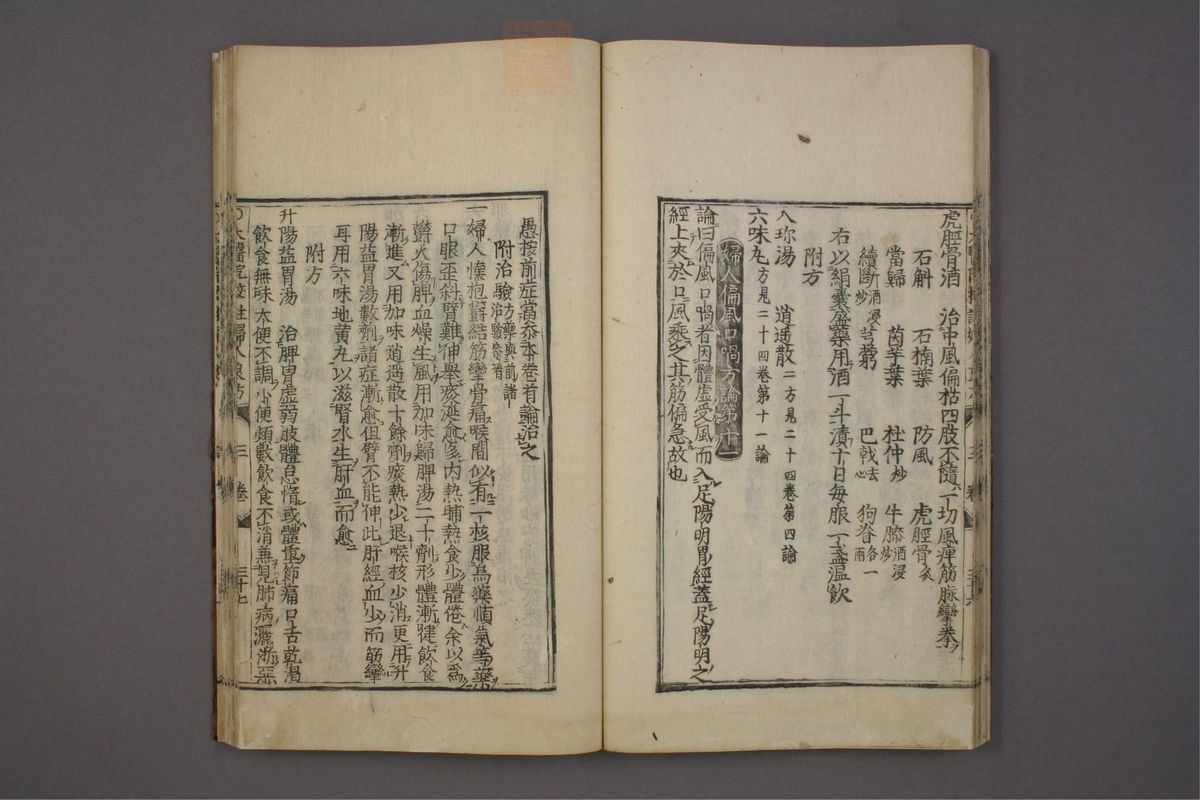 虎脛骨酒　治中風偏枯四肢不隨一切風痺筋脉攣拳
石斛　石楠葉　防風　虎脛骨炙
當歸　茵芋葉　杜仲炒　牛膝酒浸炒
續斷酒浸炒　芎藭　巴戟去心　狗脊各一兩
右以絹囊盛藥用酒一斗漬十日每服一盞温飲
附方
八珎湯　逍遥散二方見二十四卷第四論
六味丸方見二十四卷第十一論
婦人偏風口喎方論第十一
論曰偏風口喎者因體虛受風而入足陽明胃經蓋足陽明之
經上夾於口風乘之其筋偏急故也
愚按前症當叅本卷首論治之
附治驗方藥與前諸治驗叅看
一婦人懷抱欝結筋攣骨痛喉間似有一核服烏藥順氣等藥
口眼歪斜臂難伸舉痰涎愈多内熱晡熱食少體倦余以爲
欝火傷脾血燥生風用加味歸脾湯二十劑形體漸健飲食
漸進又用加味逍遥散十餘劑痰熱少退喉核少消更用升
陽益胃湯數劑諸症漸愈但臂不能伸此肝經血少而筋攣
耳用六味地黄丸以滋腎水生肝血而愈
附方
升陽益胃湯　治脾胃虛弱肢體怠惰或體重節痛口舌乾渇
飲食無味大便不調小便頻數飲食不消兼見肺病灑淅惡